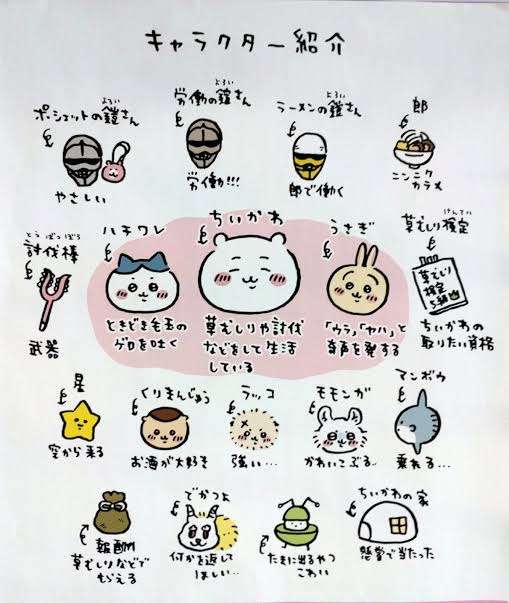 キャラクター紹介
よろい
ポシェットの鎧さん
やさしい
よろい
労働の鎧さん
労働!!!
よろい
ラーメンの鎧さん
郎で働く
郎
ニンニク
カラメ
とうばつぼう
討伐棒
武器
ハチワレ
ときどき毛玉の
ゲロを吐く
ちいかわ
草むしりや討伐
などをして生活
している
うさぎ
「ウラ」「ヤハ」と
奇声を発する
けんてい
草むしり検定
草むしり
検定
5級
ちいかわの
取りたい資格
星
空から来る
くりまんじゅう
お酒が大好き
ラッコ
強い…
モモンガ
かわいこぶる…
マンボウ
乗れる…
報酬
草むしりなどで
もらえる
でかつよ
何かを返して
ほしい…
たまに出るやつ
こわい
ちいかわの家
懸賞で当たった